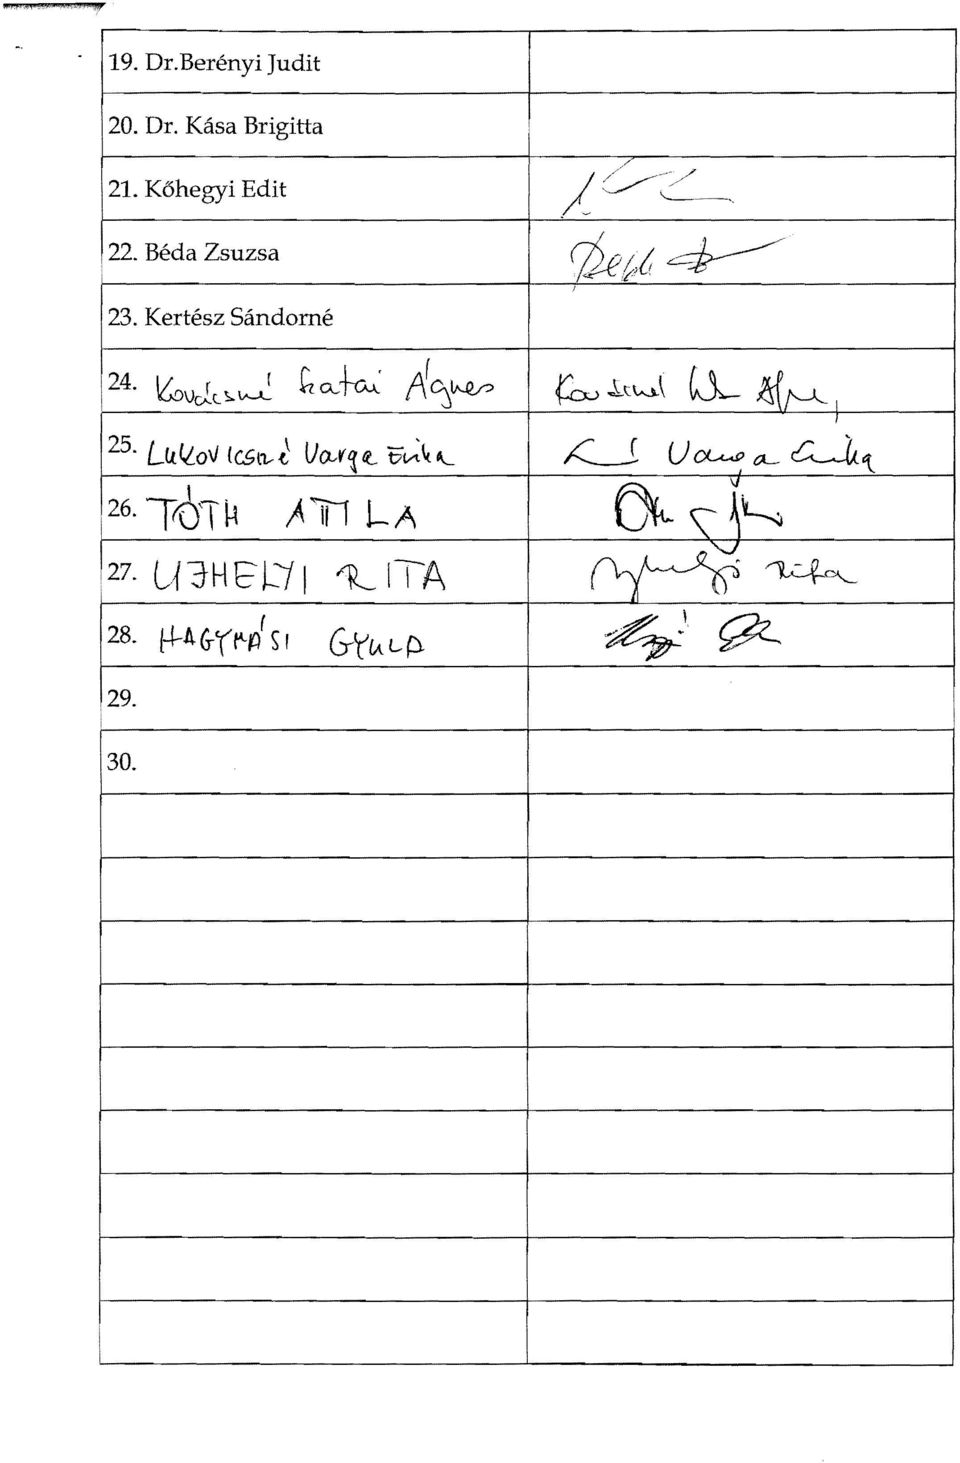 19. Dr.Berényi Judit
20. Dr. Kása Brigitta
21. Kőhegyi Edit
22. Béda Zsuzsa
23. Kertész Sándorné
24. Kovácsné Szatai Ágnes
25. Lukovicsné Varga Erika Varga Erika
26. TÓTH ATTILA
27. UJHELYI RITA Rita
28. HAGYMÁSI GYULA
29.
30.